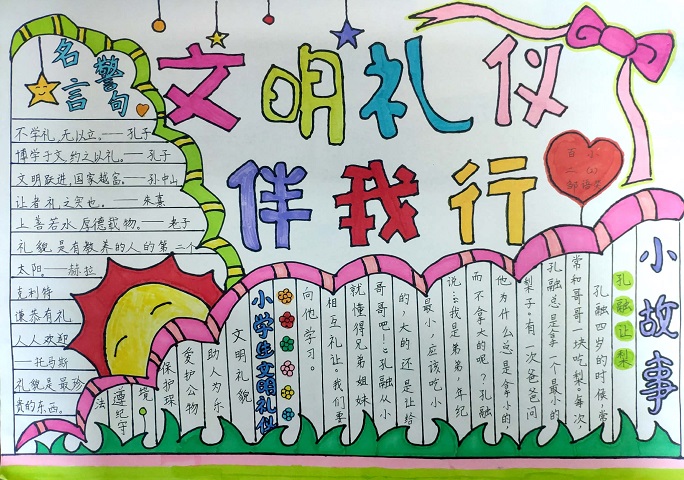 文明礼仪
伴我行
名言
警句
不学礼,无以立。——孔子
博学于文,约之以礼。——孔子
文明跃进,国家越富。——孙中山
让者,礼之实也。——朱熹
上善若水,厚德载物。——老子
礼貌是有教养的人的第二个
太阳。——赫拉
克利特
谦恭有礼
人人欢迎
——托马斯
礼貌是最珍
贵的东西。
小故事
孔融让梨
孔融四岁的时候,常
常和哥哥一块吃梨。每次,
孔融总是拿一个最小的
梨子。有一次爸爸问
他为什么总是拿小的
而不拿大的呢?孔融
说:“我是弟弟,年纪
最小,应该吃小
的,大的还是让给
哥哥吧!”孔融从小
就懂得兄弟姐妹
相互礼让。我们要
向他学习。
小学生文明礼仪
文明礼貌
助人为乐
爱护公物
保护环
境
遵纪守
法